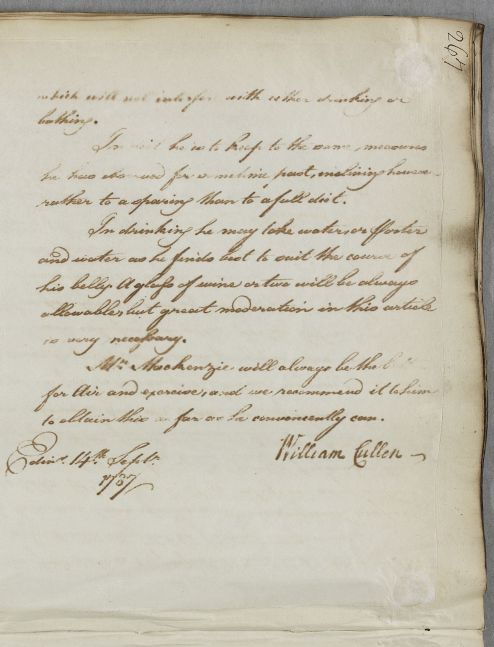 267
which will not interfere with either drinking or
bathing.
In he is to keep to the same measures
he has observed for sometime past, inclining however
rather to a sparing than to a full diet.
In drinking he may take water, or Porter
and water as he finds best to suit the course of
his belly. A glass of wine or two will be always
allowable, but great moderation in this article
is very necessary.
Mr. Mackenzie will always be the
for Air and exercise, and we recommend it to him
to obtain this as far as he conveniently can.
Edinr. 14th. Septr.
1787
William Cullen